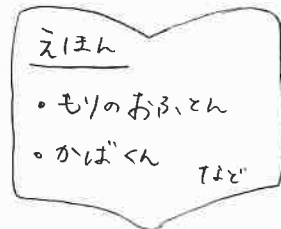 えほん
・もりのおふとん
・かばくん
など